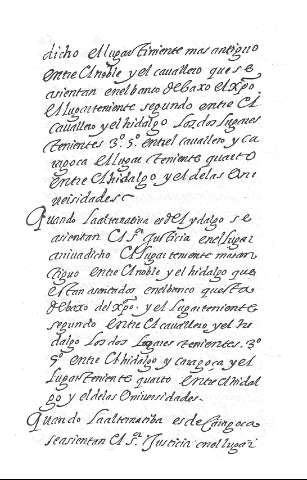 dicho el lugartiniente mas antiguo
entre El noble y el cavallero que se
asientan en el banco debaxo el Xpo.
El lugarteniente segundo entre El
cavallero y el hidalgo Los dos lugares
tenientes 3º. 5º. entre el cavallero y ca
ragoca el lugar teniente quarto
entre El hidalgo y el de las Uni
versidades
Quando La alternativa es del ydalgo se
asientan El Sr. Justicia en el lugar
arriva dicho El lugarteniente mas an
tiguo entre El noble y el hidalgo que
estan asentados en el banco questa
debaxo del xpo. y el lugarteniente
segundo entre El cavallero y el hi
dalgo Los dos Lugares tenientes. 3º
5º entre El hidalgo y caragoça y el
Lugarteniente quarto entre El hidal
go y el de las Universidades.
Quando La alternativa es de Caragoca
se asientan El Sr. Justicia en el lugar